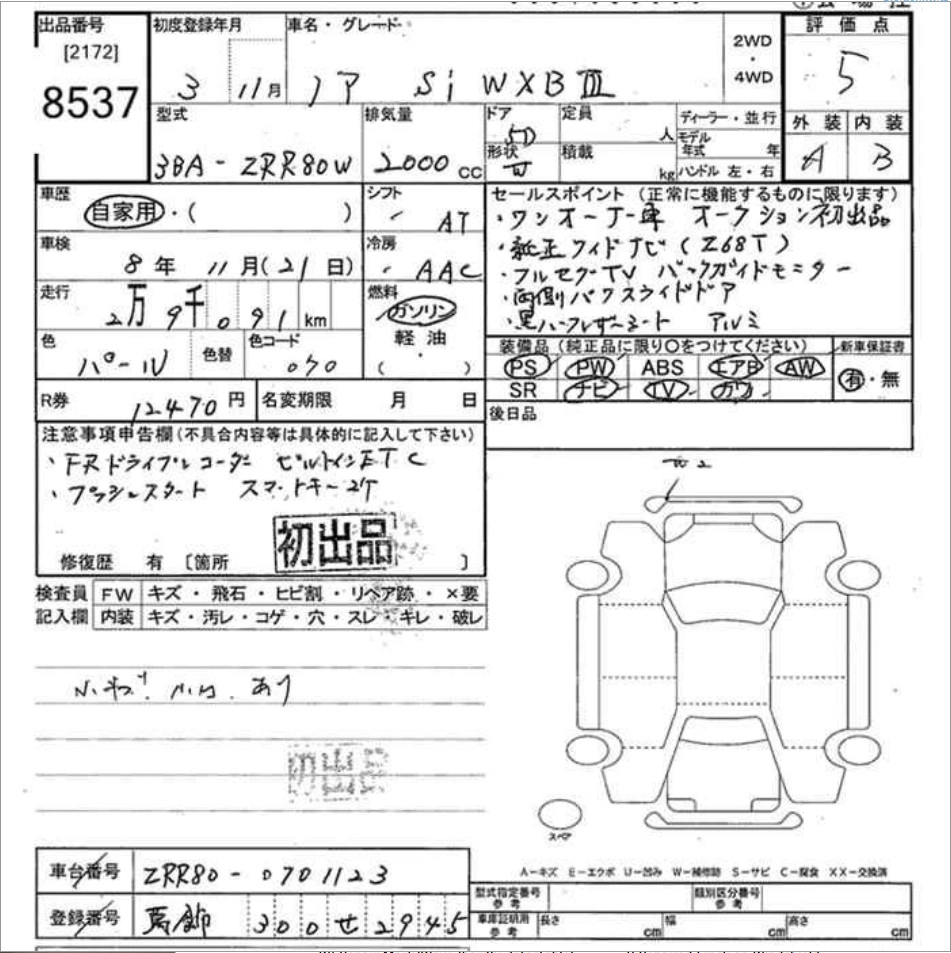 出品番号 初度登録年月 車名・グレード 評価点
[2172]
8537
3 11月 ノア Si WXBⅢ
2WD
・
4WD
5
型式 排気量 ドア 定員 ディーラー・並行 外装 内装
3BA-ZRR80W 2000cc 5D 人 モデル年式 年 A B
形状 W 積載 kg ハンドル 左・右
車歴 シフト
自家用・( ) AT
車検 冷房
8年 11月(21日) AAC
走行 燃料
2万9千091km ガソリン
軽油
・
( )
色 色替 色コード
パール 070
R券 12470円 名変期限 月 日
セールスポイント(正常に機能するものに限ります)
・ワンオーナー車 オークション初出品
・純正ワイドナビ(Z68T)
・フルセグTV バックガイドモニター
・両側パワスライドドア
・黒ハーフレザーシート アルミ
装備品(純正品に限り○をつけてください) 新車保証書
PS PW ABS エアB AW 有・無
SR ナビ TV カワ
後日品
注意事項申告欄(不具合内容等は具体的に記入して下さい)
・FRドライブレコーダー ビルトインETC
・プッシュスタート スマートキー2ケ
初出品
修復歴 有 〔箇所 〕
検査員 FW キズ・飛石・ヒビ割・リペア跡・×要
記入欄 内装 キズ・汚レ・コゲ・穴・スレ・キレ・破レ
小キズ あり
初出品
スペア
A-キズ E-エクボ U-凹み W-補修跡 S-サビ C-腐食 XX-交換済
車台番号 ZRR80-0701123
登録番号 葛飾 300せ2945
型式指定番号 参考 類別区分番号 参考
車庫証明用 参考 長さ cm 幅 cm 高さ cm